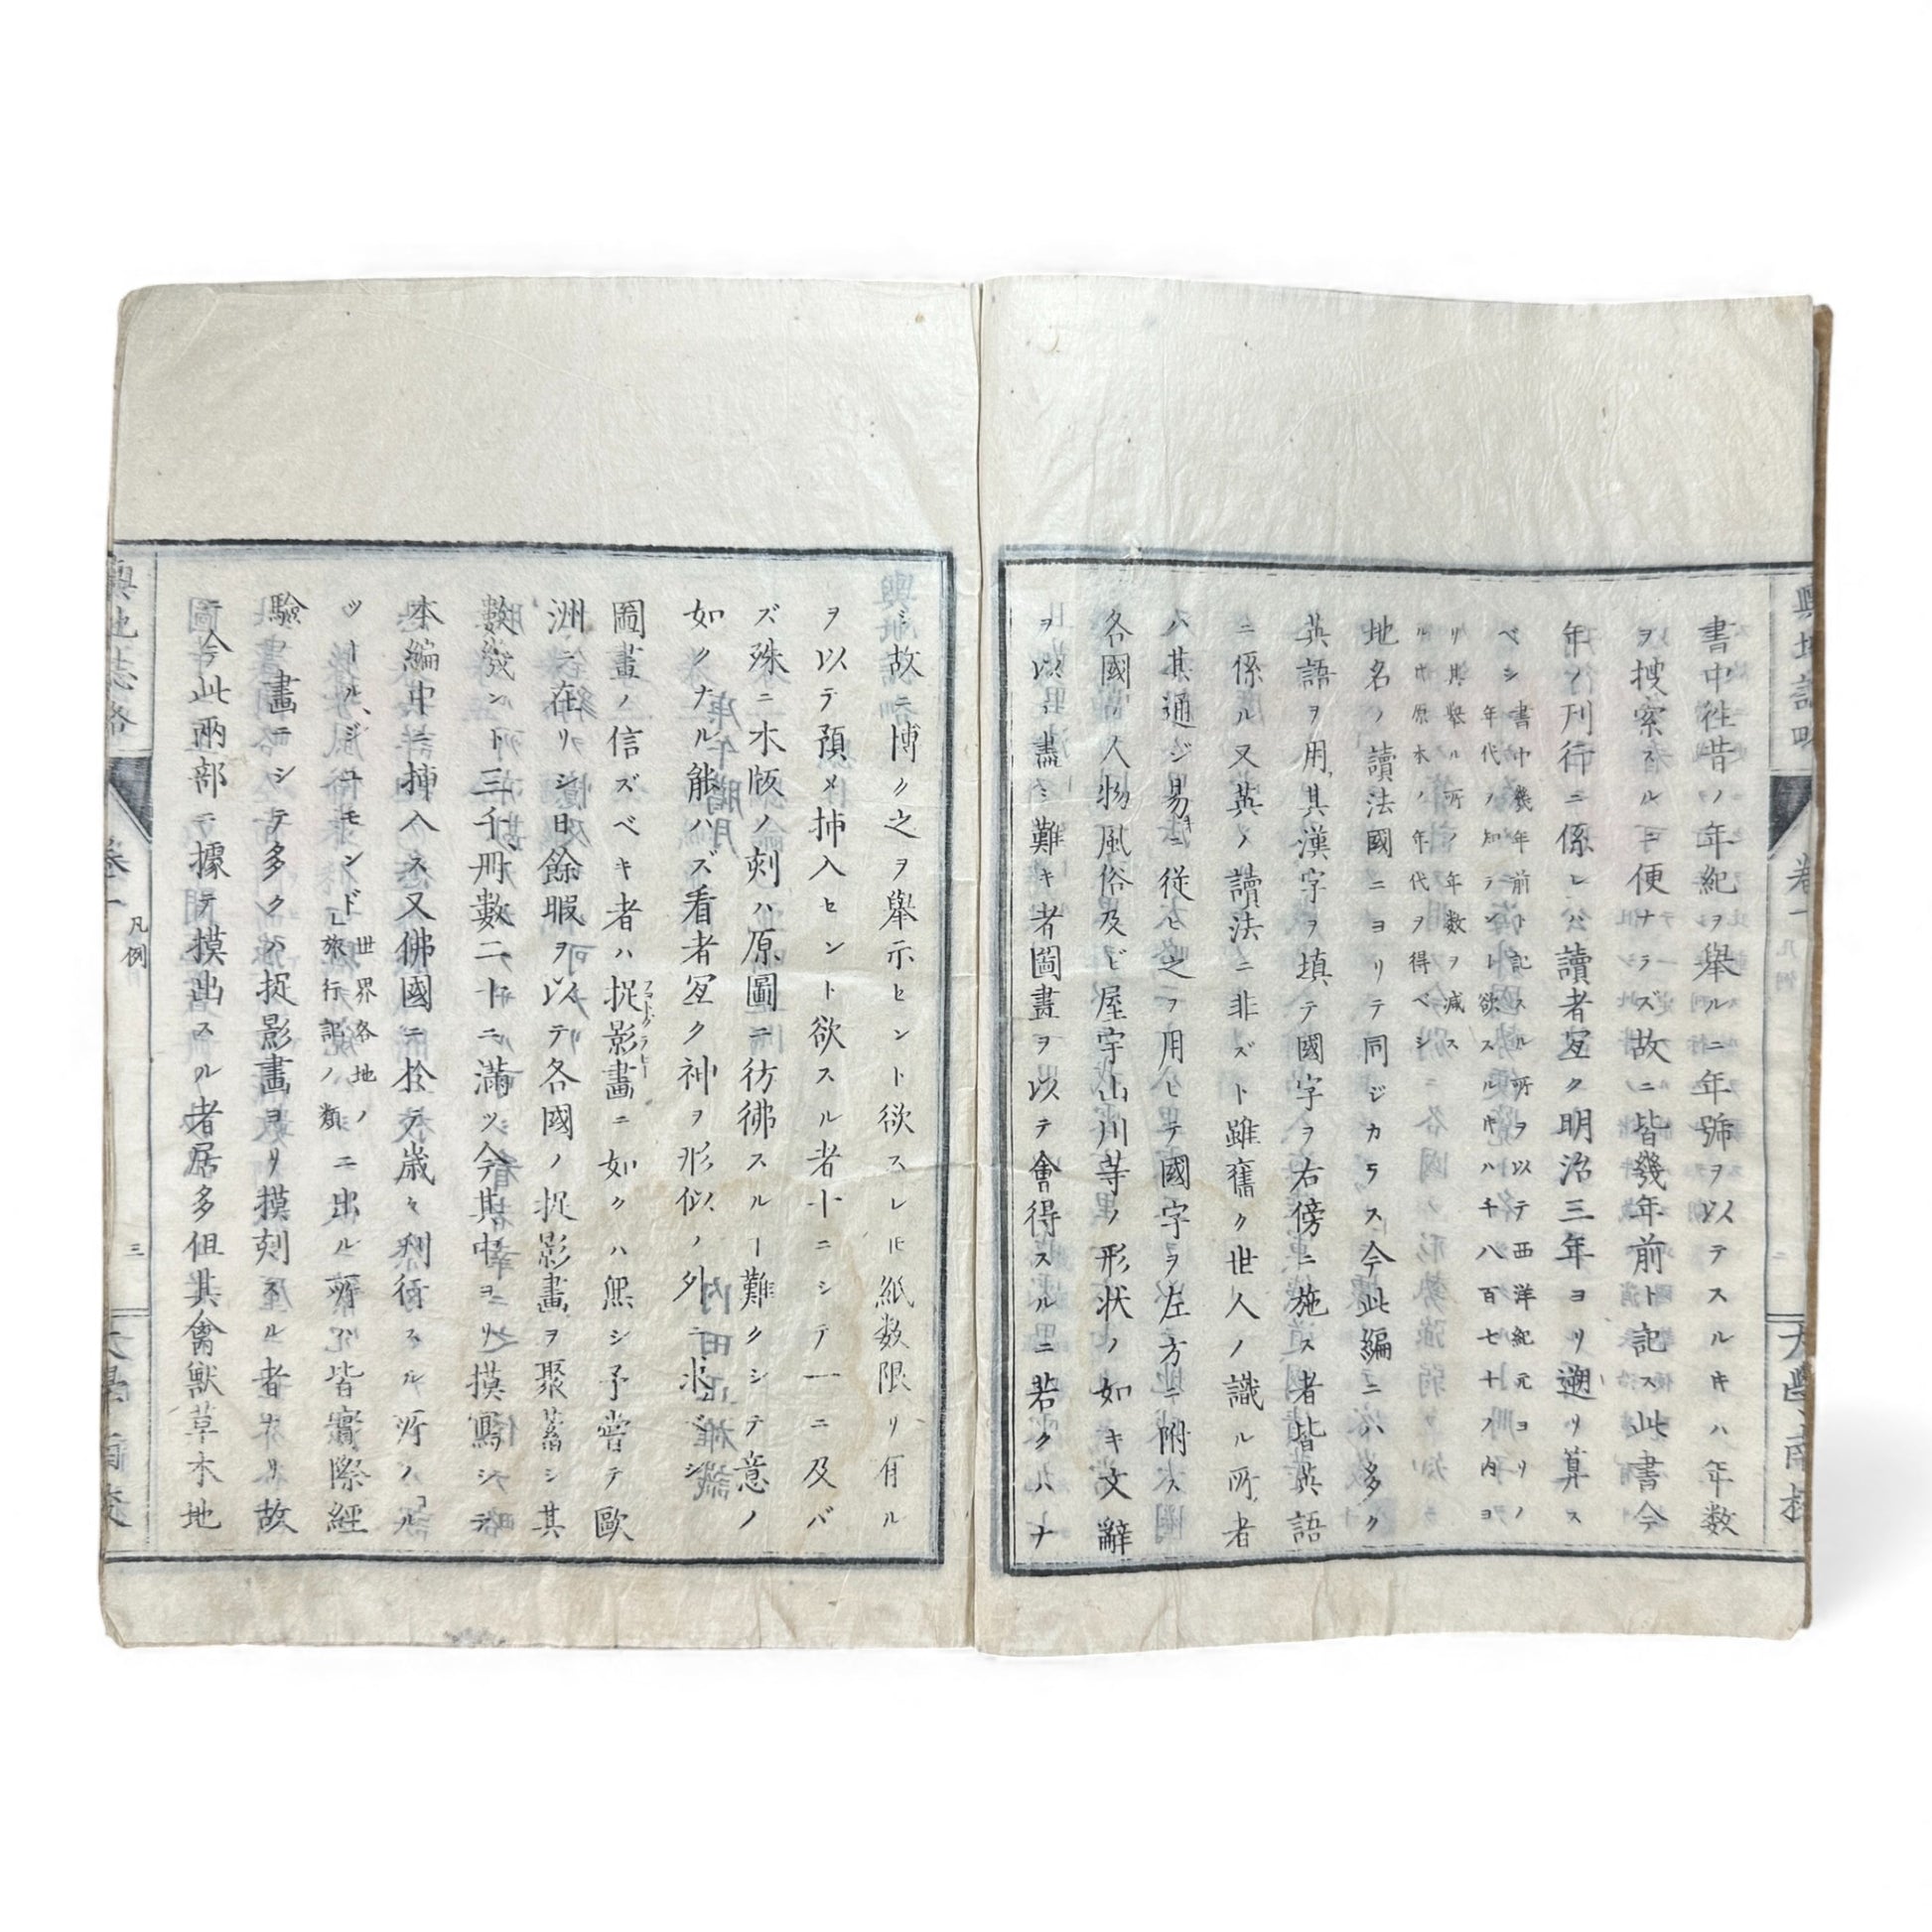 書中徃昔ノ年紀ヲ舉ルニ年號ヲ以テスルキハ年数
ヲ捜索スルニ便ナラズ故ニ皆幾年前ト記ス此書今
年ノ刊行ニ係レハ讀者冝ク明治三年ヨリ遡リ算ス
ベシ
書中幾年前ト記スル所ヲ以テ西洋紀元ヨリノ
年代ノ知ラント欲スルキハ千八百七十ノ内ヨ
リ其舉ル所ノ年数ヲ減ス
ルキ原木ノ年代ヲ得ベシ
地名ノ讀法國ニヨリテ同ジカラス今此編ニハ多ク
英語ヲ用其漢字ヲ填テ國字ヲ右傍ニ施ス者皆英語
ニ係ル又英ノ讀法ニ非ズト雖舊ク世人ノ識ル所者
ハ其通ジ易キニ従ヒ之ヲ用ヒテ國字ヲ左方ニ附ス
各國ノ人物風俗及ビ屋宇山川等ノ形状ノ如キ文辭
ヲ以テ盡シ難キ者圖畫ヲ以テ會得スルニ若クハナ
シ故ニ博ク之ヲ舉示セント欲スレ𪜈紙数限リ有ル
ヲ以テ預メ挿入セント欲スル者十ニシテ一ニ及バ
ズ殊ニ木版ノ刻ハ原圖ニ彷彿スルヿ難クシテ意ノ
如クナル能ハズ看者冝ク神ヲ形似ノ外ニ求ムベシ
圖畫ノ信ズベキ者ハ捉影畫ニ如クハ無シ予嘗テ歐
洲ニ在リシ日餘暇ヲ以テ各國ノ捉影畫ヲ聚蓄シ其
數殆ント三千冊數二十ニ満ツ今其中ヨリ摸寫シテ
本編中ニ挿入ス又佛國ニ於テ歳々刋行スル所ノ「ル
ツールジユモンド」
世界各地ノ
旅行記ノ類
ニ出ル所ハ皆實際經
驗ノ畫ニシテ多クハ捉影畫ヨリ摸刻スル者ナリ故
ニ今此兩部ニ據テ摸出スル者居多但其禽獸草木地
輿地誌略
卷一
凡例
三
大學南校